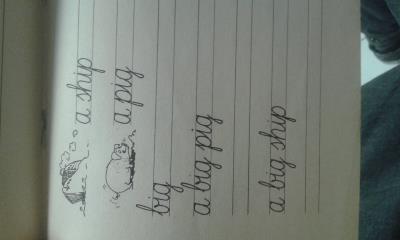 a ship
a pig
big
a big pig
a big ship